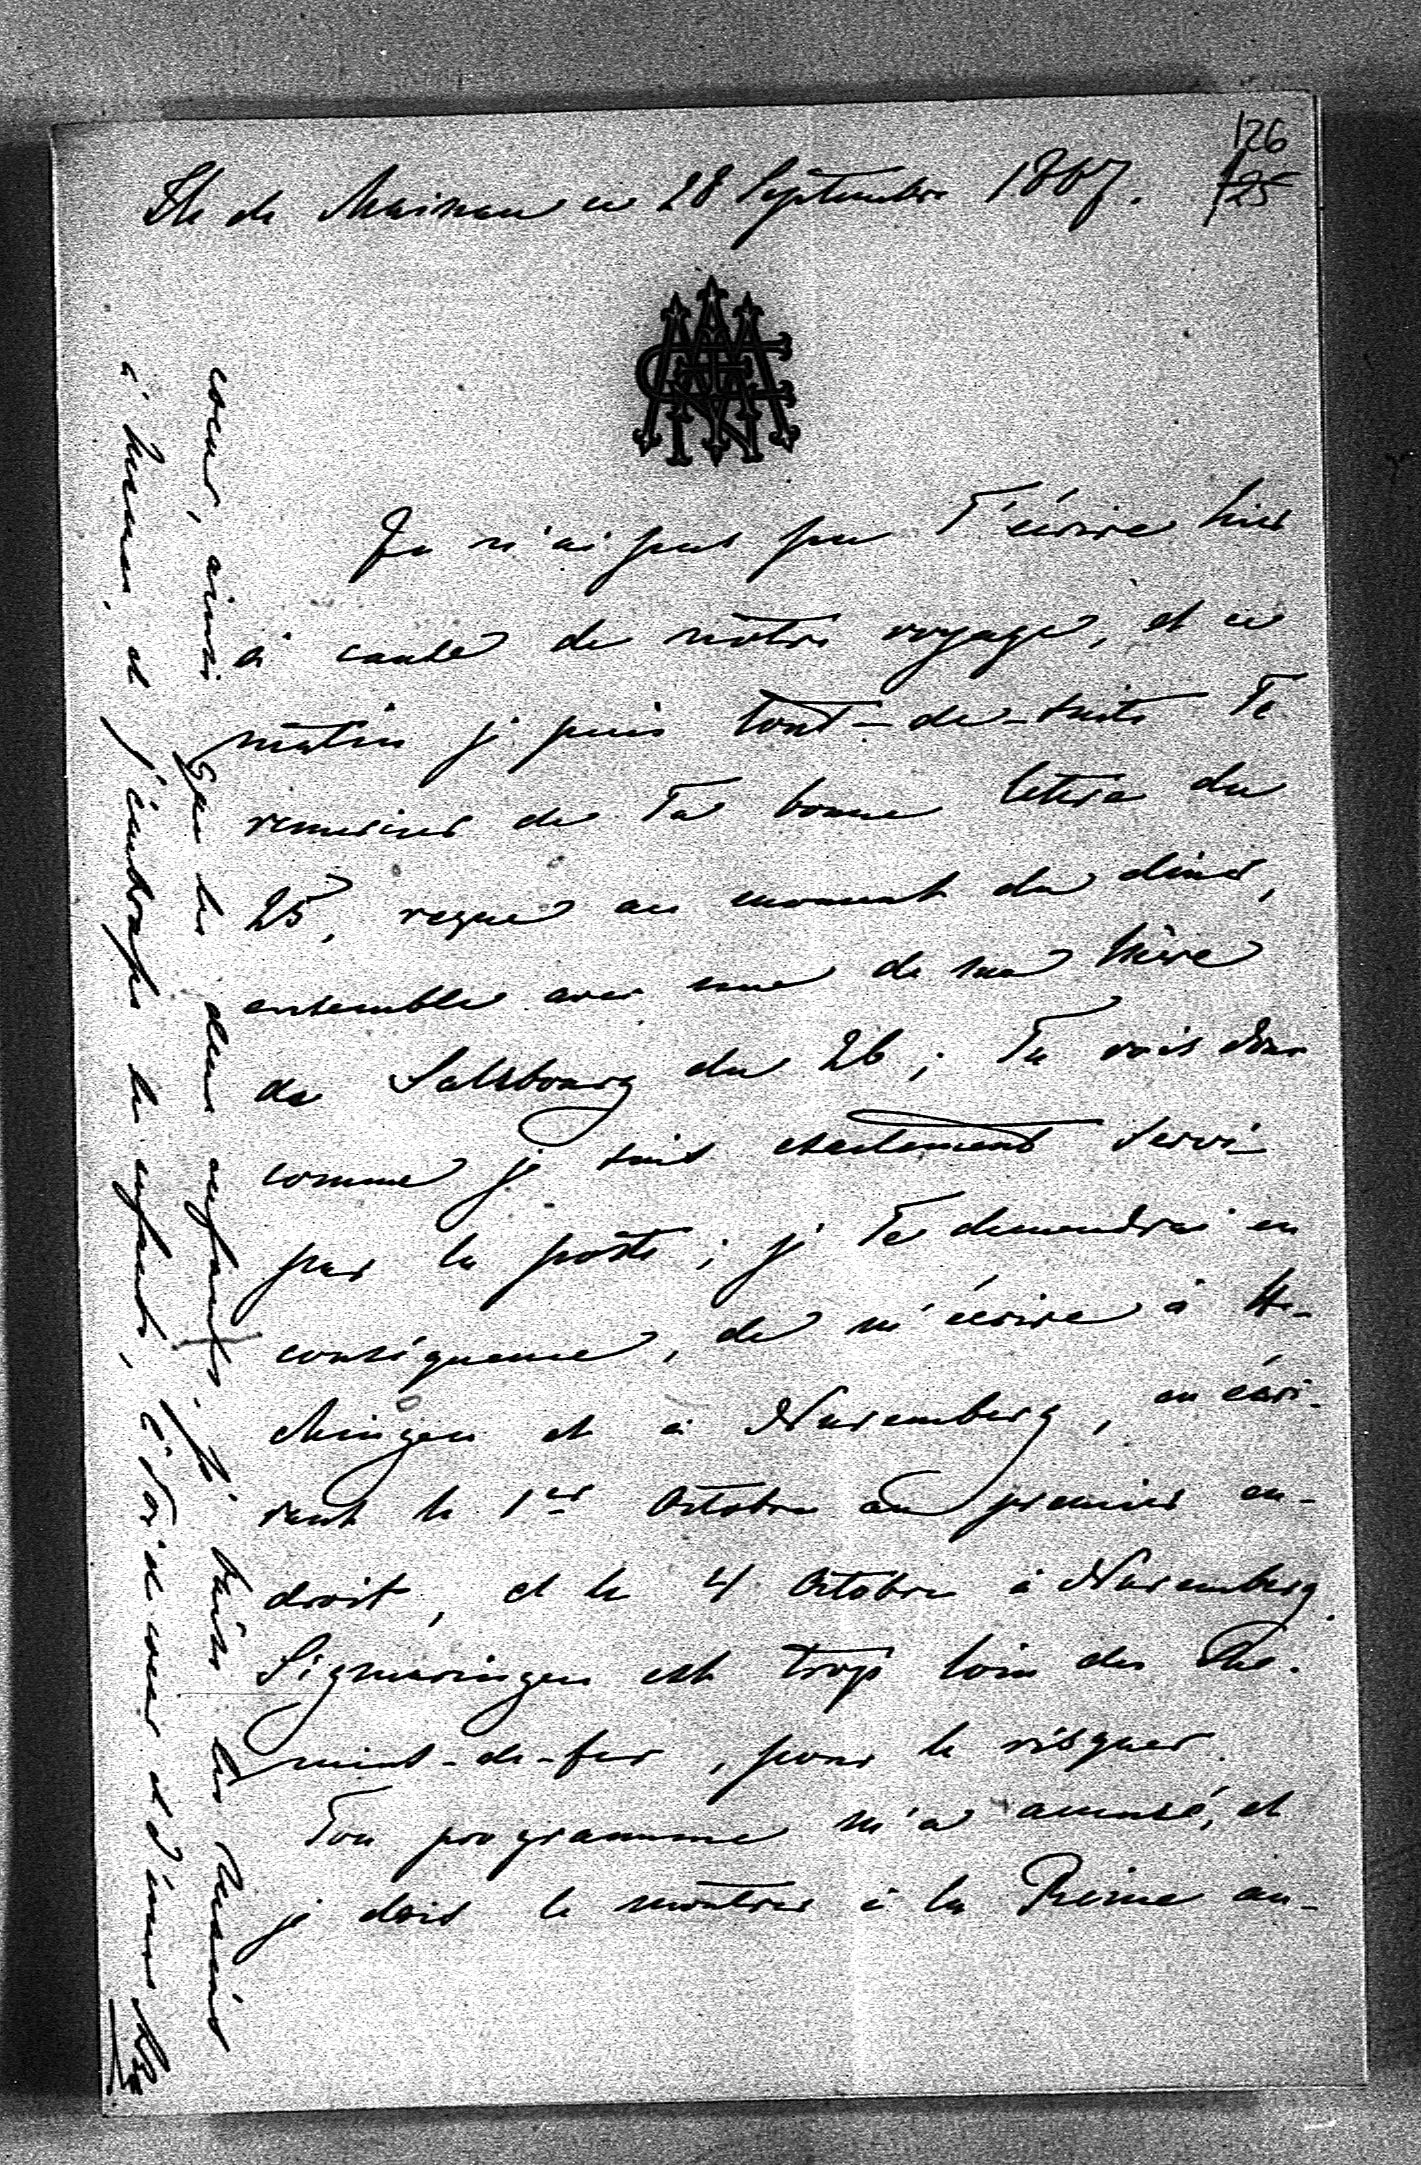 126
125
Ile de Mainau ce 28 Septembre 1867.
Je n'ai pas pu T'écrire hier
à cause de nôtre voyage, et ce
matin je puis tout-de-suite Te
remercier de Ta bonne lettre du
25, reçue au moment du dîner,
ensemble avec une de ma Mère
de Salsbourg du 26; Tu vois donc
comme je suis exactement servi
par la poste; je Te demanderai en
conséquence, de m'écrire à He-
chingen et à Nuremberg, en écri-
vant le 1er Octobre au premier en-
droit, et le 4 Octobre à Nuremberg.
Sigmaringen est trop loin des Che-
mins-de-fer, pour le risquer.
Ton programme m'a amusé, et
je dois le montrer à la Reine au-
coeur, ainsi que les deux enfants. Je baise les mains
à maman et j'embrasse les enfants, à Toi de coeur et d'âme